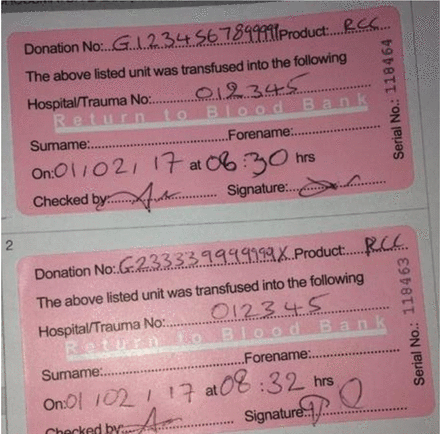 Donation No: G123456789999 Product: RCC
The above listed unit was transfused into the following
Hospital/Trauma No: 012345
Return to Blood Bank
Surname: Forename:
On: 01/02/17 at 08:30 hrs
Checked by: Signature:
Serial No.: 118464
2
Donation No: G233339999999X Product: RCC
The above listed unit was transfused into the following
Hospital/Trauma No: 012345
Return to Blood Bank
Surname: Forename:
On: 01/02/17 at 08:32 hrs
Checked by: Signature:
Serial No.: 118463